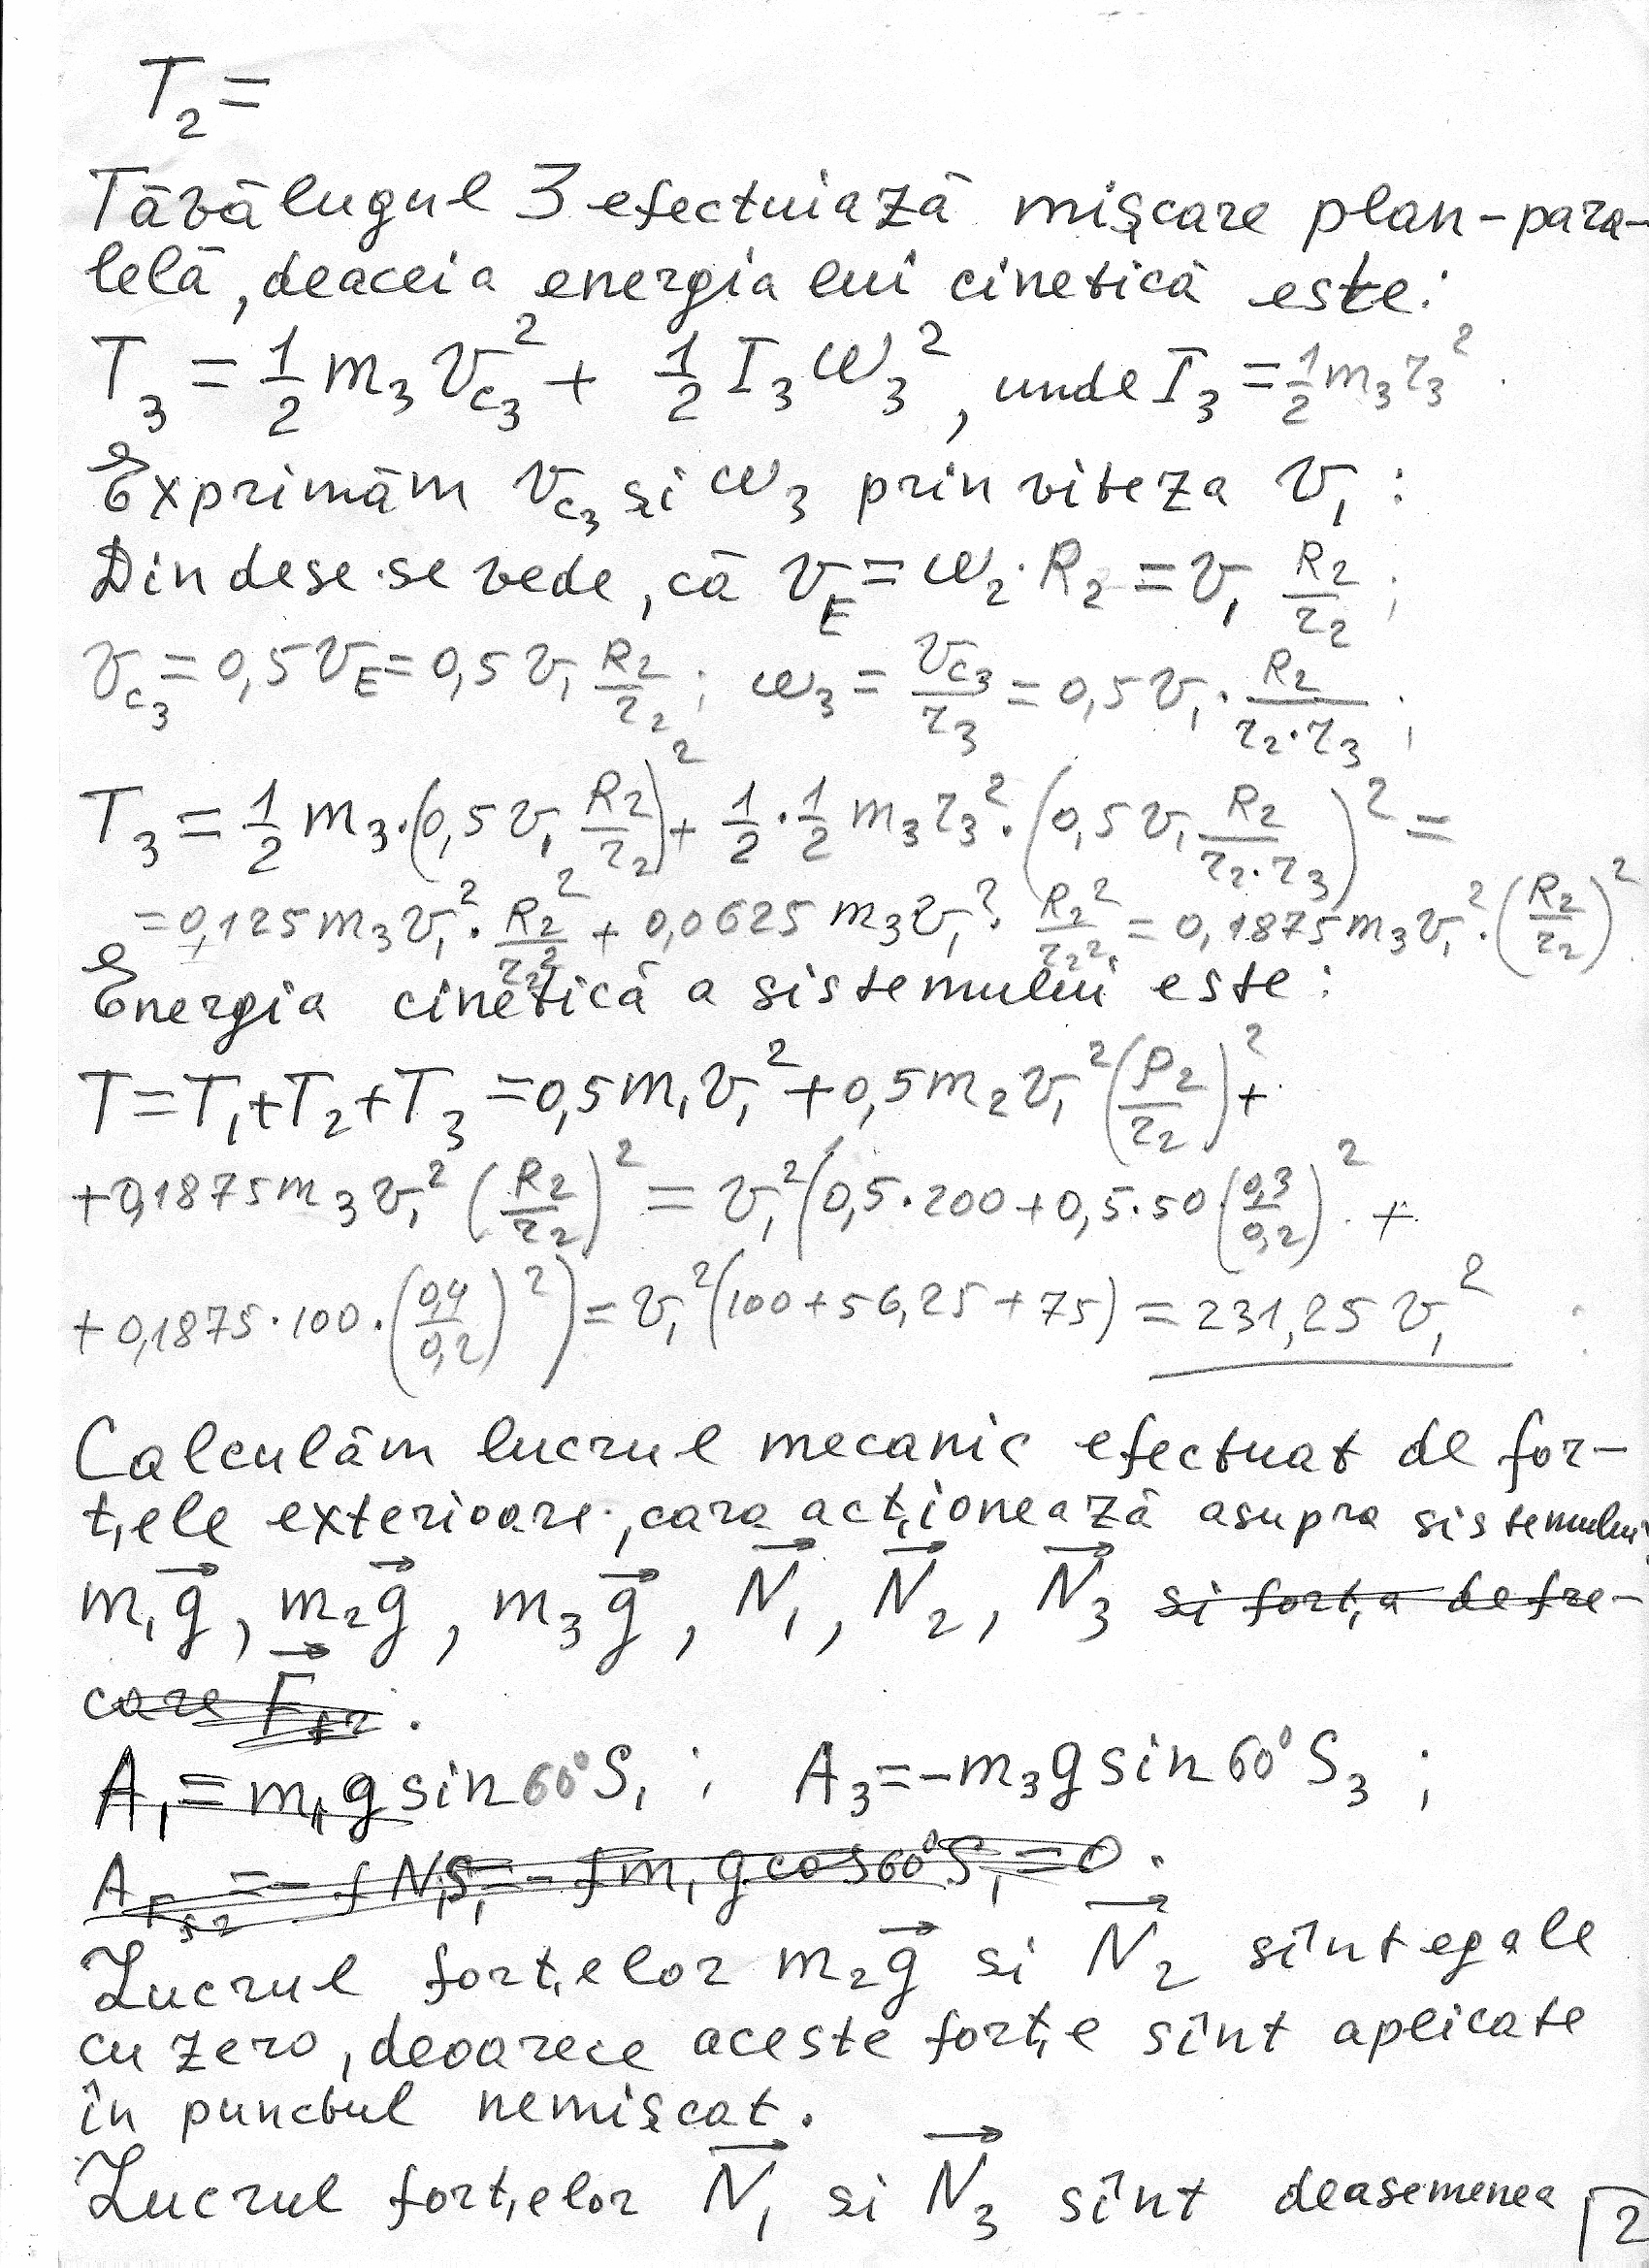 T₂ =
Tăvălugul 3 efectuiază mișcare plan-para-
lelă, deaceia energia lui cinetică este:
T₃ = 1/2 m₃ v_C₃² + 1/2 I₃ ω₃², unde I₃ = 1/2 m₃ r₃².
Exprimăm v_C₃ și ω₃ prin viteza v₁ :
Din dese. se vede, că v_E = ω₂·R₂ = v₁ R₂/r₂ ;
v_C₃ = 0,5 v_E = 0,5 v₁ R₂/r₂ ; ω₃ = v_C₃/r₃ = 0,5 v₁ · R₂/(r₂·r₃) ;
T₃ = 1/2 m₃·(0,5 v₁ R₂/r₂)² + 1/2 · 1/2 m₃ r₃² · (0,5 v₁ R₂/(r₂·r₃))² =
= 0,125 m₃ v₁² · R₂²/r₂² + 0,0625 m₃ v₁² · R₂²/r₂² = 0,1875 m₃ v₁² · (R₂/r₂)².
Energia cinetică a sistemului este:
T = T₁ + T₂ + T₃ = 0,5 m₁ v₁² + 0,5 m₂ v₁² (ρ₂/r₂)² +
+ 0,1875 m₃ v₁² (R₂/r₂)² = v₁² (0,5·200 + 0,5·50 (0,3/0,2)² +
+ 0,1875·100·(0,4/0,2)²) = v₁² (100 + 56,25 + 75) = 231,25 v₁²
Calculăm lucrul mecanic efectuat de for-
țele exterioare, cara acționează asupra sistemului
m₁g⃗, m₂g⃗, m₃g⃗, N⃗₁, N⃗₂, N⃗₃ si forța de fre-
care F⃗fr.
A₁ = m₁ g sin 60° S₁ ; A₃ = -m₃ g sin 60° S₃ ;
A_Ffr = - f N₁S₁ = - f m₁ g cos 60° S₁ = 0.
Lucrul forțelor m₂g⃗ si N⃗₂ sînt egale
cu zero, deoarece aceste forțe sînt aplicate
în punctul nemișcat.
Lucrul forțelor N⃗₁ si N⃗₃ sînt deasemenea
2